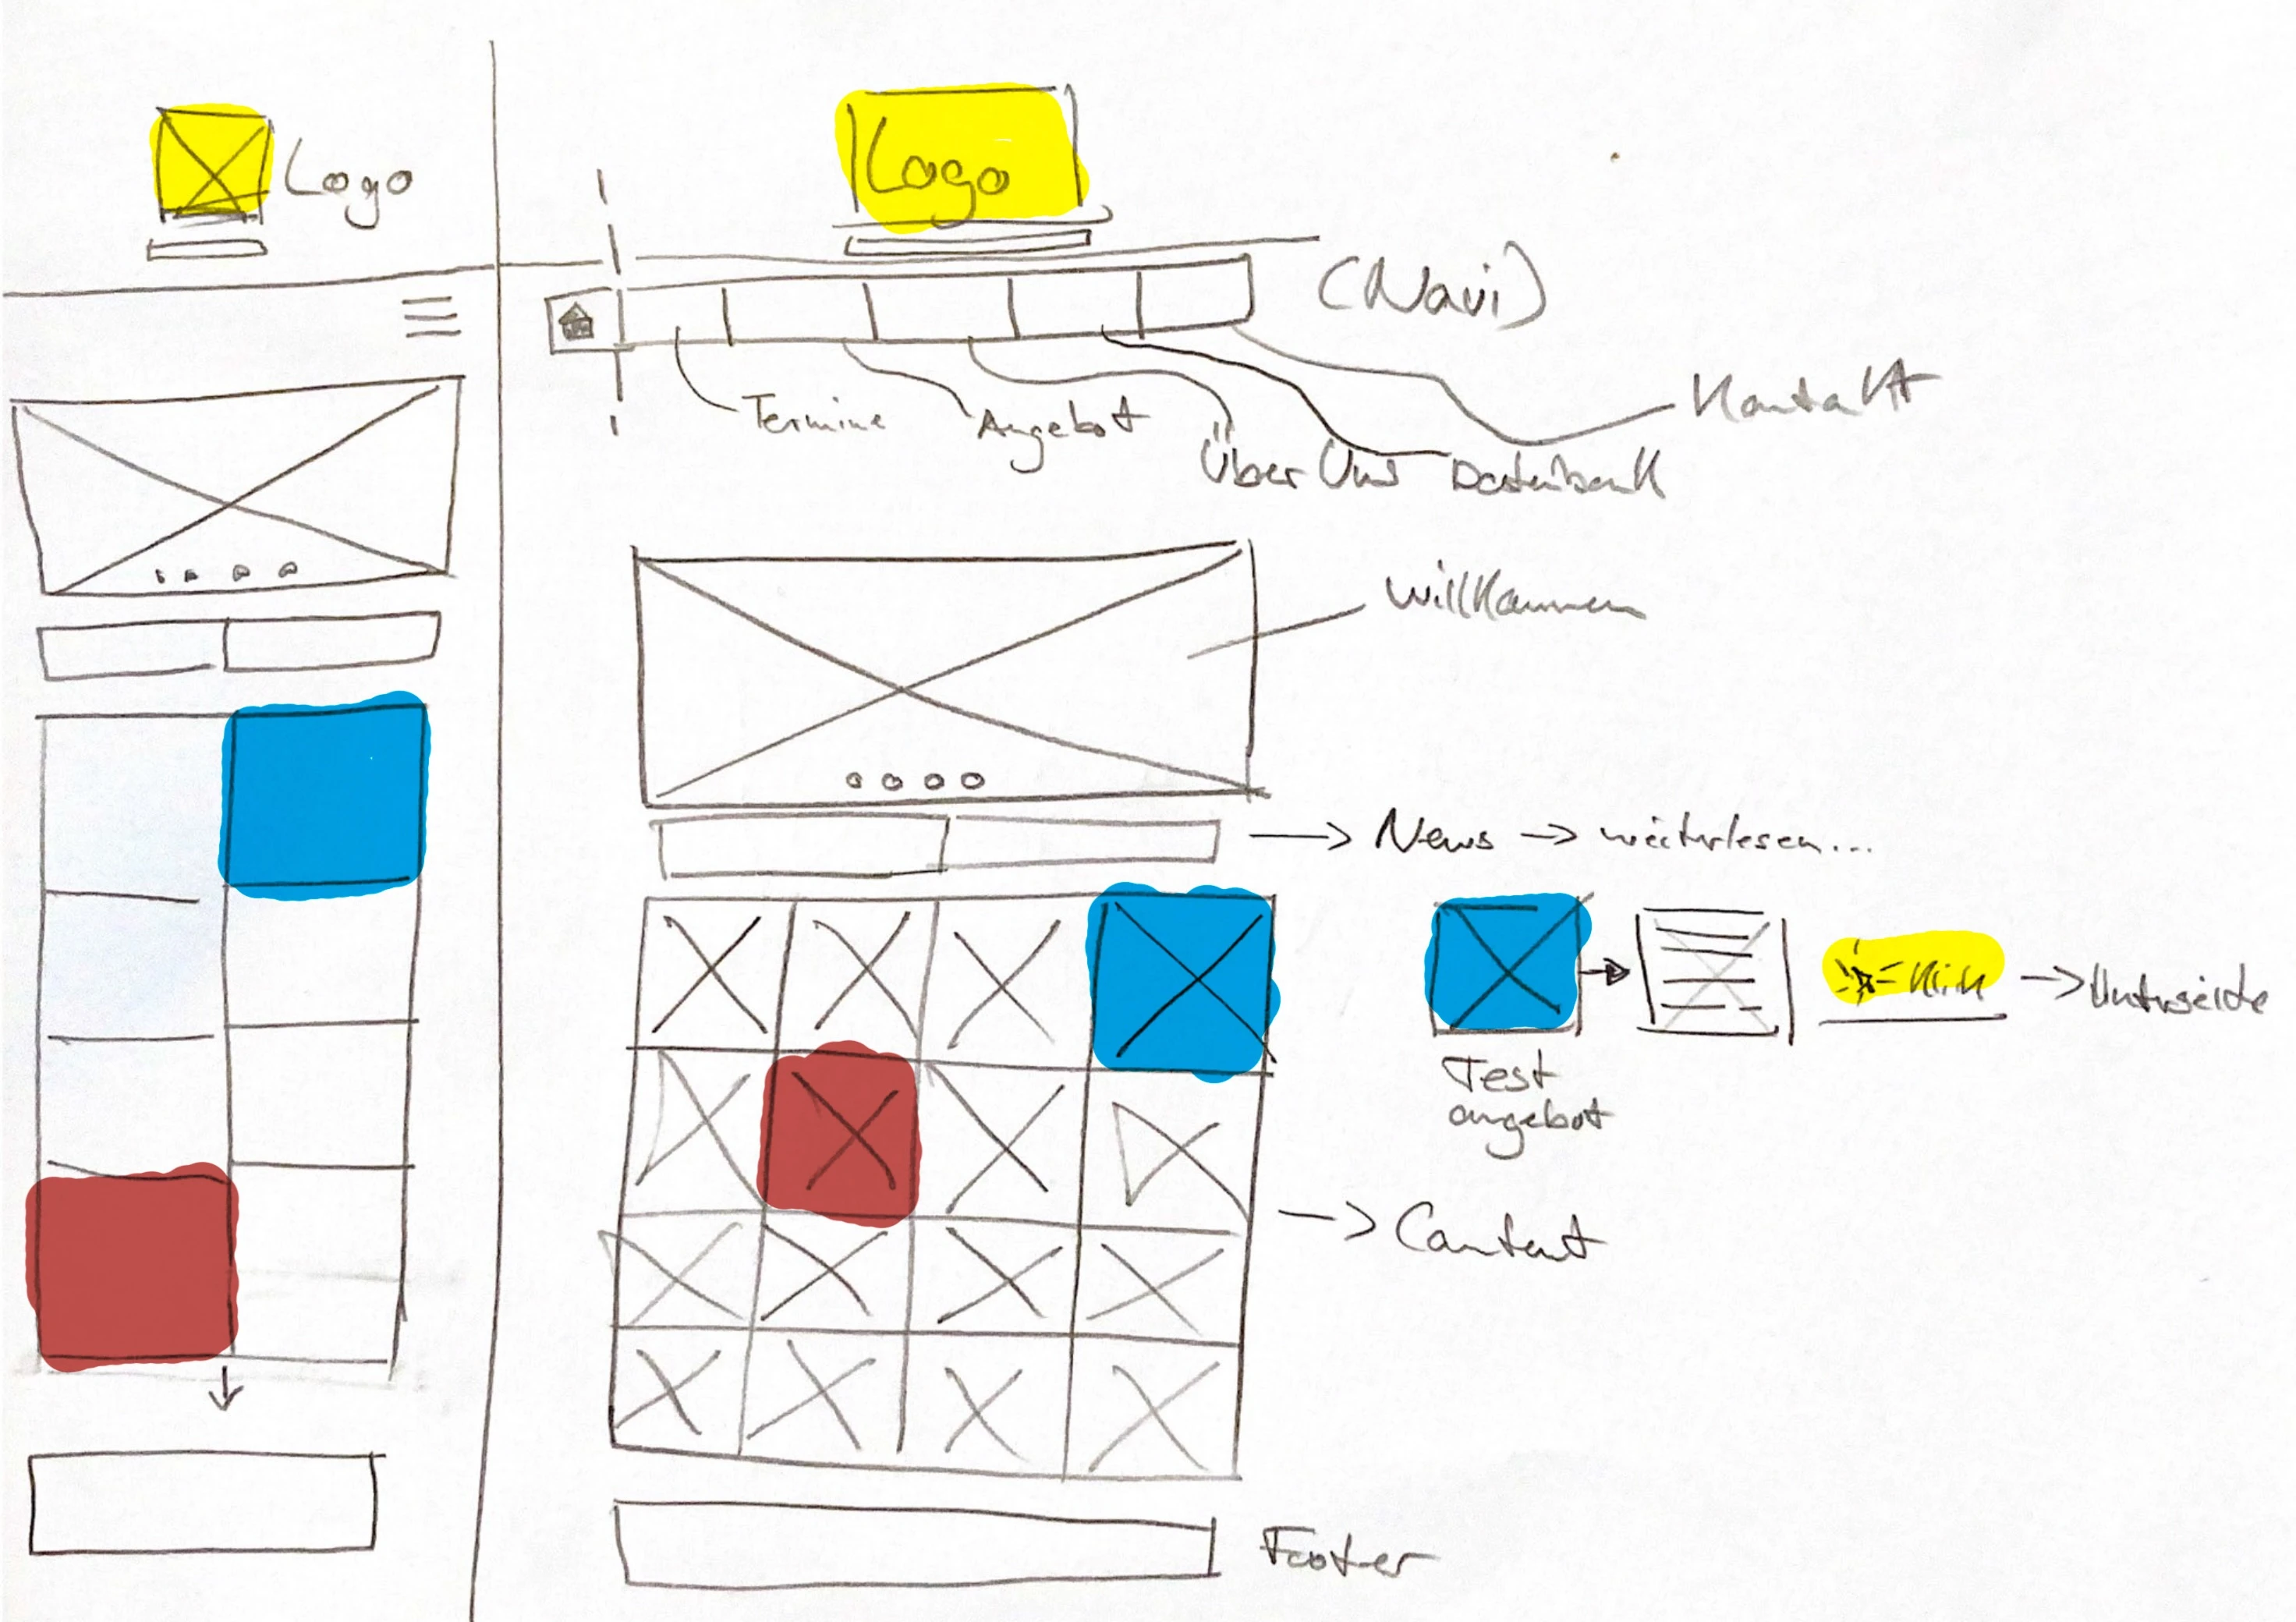 Logo
Logo
(Navi)
Termine
Angebot
Über Uns
Datenbank
Kontakt
Willkommen
→ News → weiterlesen...
Test
angebot
Klick
→ Unterseite
→ Content
Footer